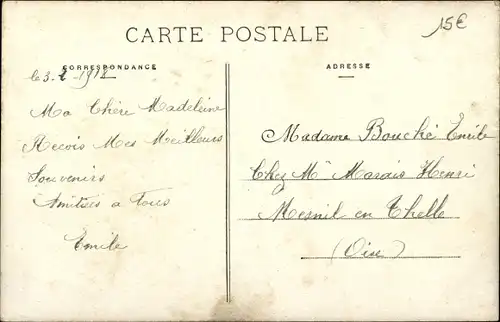 15€
CARTE POSTALE
CORRESPONDANCE
le 3- -1912
Ma Chère Madeleine
Recois Mes Meilleurs
Souvenirs
Amitiés a Tous
Emile
ADRESSE
Madame Bouché Emile
Chez Mr Marais Henri
Mesnil en Thelle
(Oise)